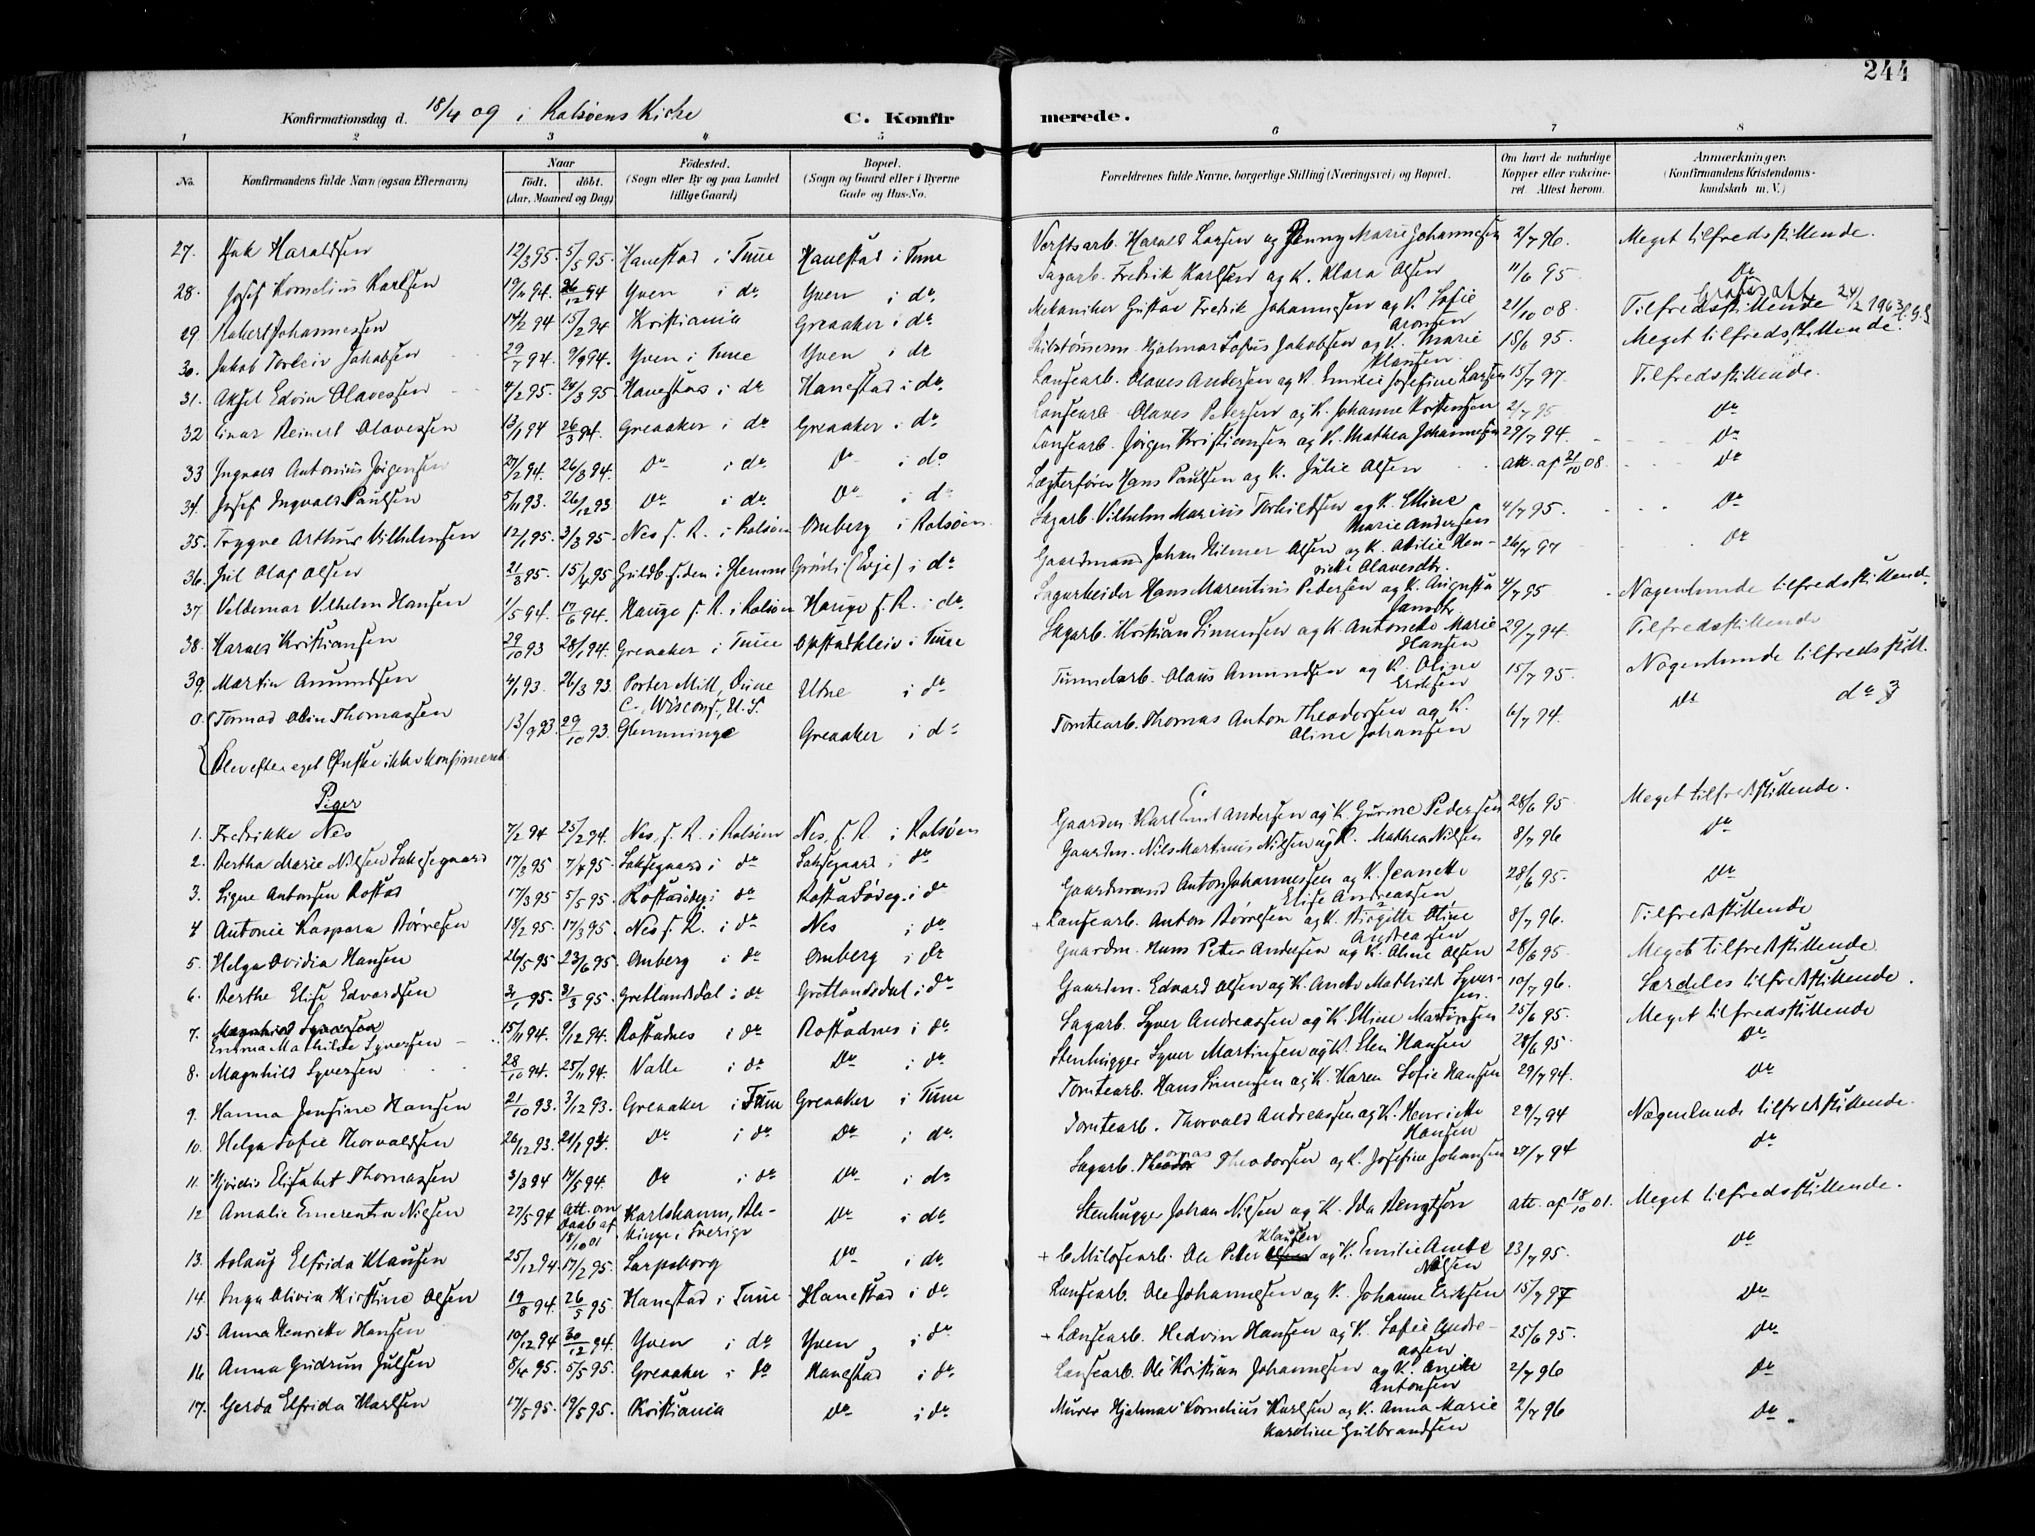 244
Konfirmationsdag d. 18/4 09 i Rolsøens Kirke C. Konfirmerede.
1 2 3 4 5 6 7 8
No. Konfirmandens fulde Navn (ogsaa Efternavn) Naar Födt. döbt. (Aar, Maaned og Dag) Födested. (Sogn eller By og paa Landet tillige Gaard) Bopæl. (Sogn og Gaard eller i Byerne Gade og Hus-No. Forældrenes fulde Navne, borgerlige Stilling (Næringsvei) og Bopæl. Om havt de naturlige Kopper eller vakcineret. Attest herom. Anmærkninger. (Konfirmandens Kristendomskundskab m. V.)
27. Haraldsen 12/3 95. 5/5 95. Hanestad i Tune Hanestad i Tune Verftsarb. Harald Larsen og Jenny Marie Johannesen 2/7 96. Meget tilfredsstillende.
28. Josef Kornelius Karlsen 19/11 94. 26/12 94 Yven i do. Yven i do. Sagarb. Fredrik Karlsen og K. Klara Olsen 11/6 95 Do
29 Robert Johannessen 14/2 94 15/2 94 Kristiania Greaaker i do. Mekaniker Gustav Fredrik Johannessen og K. Sofie Aronsen 21/10 08. Tilfredsstillende 24/2 1963
30. Jakob Torleiv Jakobsen 29/7 94. 9/9 94. Yven i Tune Yven i do Hjalmar Lofus Jakobsen og K. Marie Klausen. 18/6 95. Meget tilfredsstillende.
31. Aksel Edvin Olavessen 4/2 95. 24/3 95 Hanestad i do Hanestad i do. Lansearb. Olaves Andersen og K. Emilie Josefine Larsen 15/7 97. Tilfredsstillende.
32 Einar Reinert Olavessen 13/1 94 26/3 94. Greaaker i do Greaaker i do. Lansearb. Olaves Petersen og K. Johanne Kristensen 2/7 95 Do
33 Ingvald Antonius Jörgensen 27/2 94. 26/3 94. Do i do. Do i do Lansearb. Jörgen Kristiansen og K. Mathea Johannesen 29/7 94. Do
34. Josef Ingvald Paulsen 5/11 93. 26/12 93 Do i do. Do i do Lægterfører Hans Paulsen og K. Julie Olsen att. af 21/10 08. Do
35. Trygve Arthur Vilhelmsen 12/1 95. 3/3 95. Nes f. R. i Rolsöen Omberg i Rolsöen Sagarb. Vilhelm Marius Torkildsen og K. Elline Marie Andersen 4/7 95. Do
36. Jul Olaf Olsen 21/3 95. 15/4 95 Guldb.siden i Glemme Grönli (Evje) i do. Gaardmand Johan Hilmer Olsen og K. Otilie Henrikke Olavesdtr. 26/7 97 Do
37 Valdemar Vilhelm Hansen 1/5 94. 17/6 94. Hauge f. R. i Rolsöen Hauge f. R. i do. Sagarbeider Hans Marentius Pedersen og K. Augusta Jansdtr. 4/7 95 Nogenlunde tilfredsstillend.
38. Harald Kristiansen 29/10 93 28/1 94. Greaaker i Tune Opstadkleiv i Tune Sagarb. Kristian Simensen og K. Antonette Marie Hansen 29/7 94. Tilfredsstillende
39. Martin Amundsen 4/1 93. 26/3 93. Porter Mill, Dunne C., Wisconsi, U. S. Utne i do Tunnelarb. Olaus Amundsen og K. Oline Eriksen 15/7 95. Nogenlunde tilfredsstill.
0. Tormod Odin Thomassen 13/9 93 29/10 93. Glemminge Greaaker i do Tomtearb. Thomas Anton Theodorsen og K. Oline Johansen 6/7 94. Do do
Blev efter eget Önske ikke konfirmeret.
Piger
1. Fredrikke Nes 7/2 94 25/2 94. Nes, f. R. i Rolsöen Nes, f. R. i Rolsöen Gaardm. Karl Emil Andersen og K. Gurine Pedersen 28/6 95 Meget tilfredsstillende.
2. Bertha Marie Nilsen Laksegaard 17/3 95 7/4 95. Laksegaard i do Laksegaard i do Gaardm. Nils Martinus Nilsen og K. Mathea Nilsen 8/7 96 Do
3. Signe Antonsen Rostad 17/3 95 5/5 95. Rostadödeg. i do Rostadödeg. i do Gaardmand Anton Johannessen og K. Jeanette Elise Andreassen 28/6 95. Do
4 Antonie Kaspara Børresen 18/2 95. 17/3 95. Nes f. R. i do Nes i do. + Lansearb. Anton Børresen og K. Birgitte Oline Andreassen 8/7 96. Tilfredsstillende
5. Helga Ovidia Hansen 26/5 95 23/6 95. Omberg i do Omberg i do Gaardm. Hans Peter Andersen og K. Oline Olsen 28/6 95. Meget tilfredsstillende
6. Berthe Elise Edvardsen 3/1 95. 3/3 95 Gretlandsdal i do Gretlandsdal i do. Gaardm. Edvard Olsen og K. Anette Mathilde Syversen. 10/7 96. Særdeles tilfredsstillende.
7. Magnhild Syversen Emma Mathilde Syversen 15/11 94. 9/12 94. Rostadnes i do Rostadnes i do. Sagarb. Syver Andreassen og K. Elline Martinsen 25/6 95. Meget tilfredsstillende
8. Magnhild Syversen 28/10 94. 25/11 94. Valle i do Do i do. Stenhugger Syver Martinsen og K. Elen Hansen 28/6 95. Do
9. Hanna Jensine Hansen 21/10 93. 3/12 93. Greaaker i Tune Greaaker i Tune Tomtearb. Hans Simensen og K. Karen Sofie Hansen 29/7 94. Do
10. Helga Sofie Thorvaldsen 26/12 93. 21/1 94. Do i do Do i do. Tomtearb. Thorvald Andreassen og K. Henriette Hansen 29/7 94 Nogenlunde tilfredsstillende.
11. Hjördis Elisabet Thomassen 3/3 94 14/5 94. Do i do Do i do. Sagarb. Thomas Theodorsen og K. Josefine Johansen 27/7 94 Do
12 Amalie Emerentia Nilsen 27/5 94 Att. om Daab af 18/10 01 Karlshamn, Blekinge i Sverige Do i do. Stenhugger Johan Nilsen og K. Ida Bengtson att. af 18/10 01. Meget tilfredsstillende.
13. Aslaug Elfrida Klausen 25/12 94 17/2 95. Sarpsborg Do i do. + Ole Peter Klausen og K. Emilie Amalie Nilsen 23/7 95. Do
14. Inga Olivia Kirstine Olsen 19/8 94. 26/5 95 Hanestad i Tune Hanestad i do Lansearb. Ole Johannesen og K. Johanne Eriksen 15/7 97 Do
15. Anna Henriette Hansen 10/12 94 30/12 94. Yven i do Yven i do + Lænsearb. Hedvin Hansen og K. Sofie Andreassen 25/6 95. Do
16 Anna Gudrun Julsen 8/4 95. 5/5 95. Greaaker i do Hanestad i do. Lansearb. Ole Kristian Johannesen og K. Anette Antonsen 2/7 96 Do
17. Gerda Elfrida Karlsen 17/5 95. 19/5 95. Kristiania Do i do. Murer Hjalmar Kornelius Karlsen og K. Anna Marie Karoline Gulbrandsen 2/7 96 Do